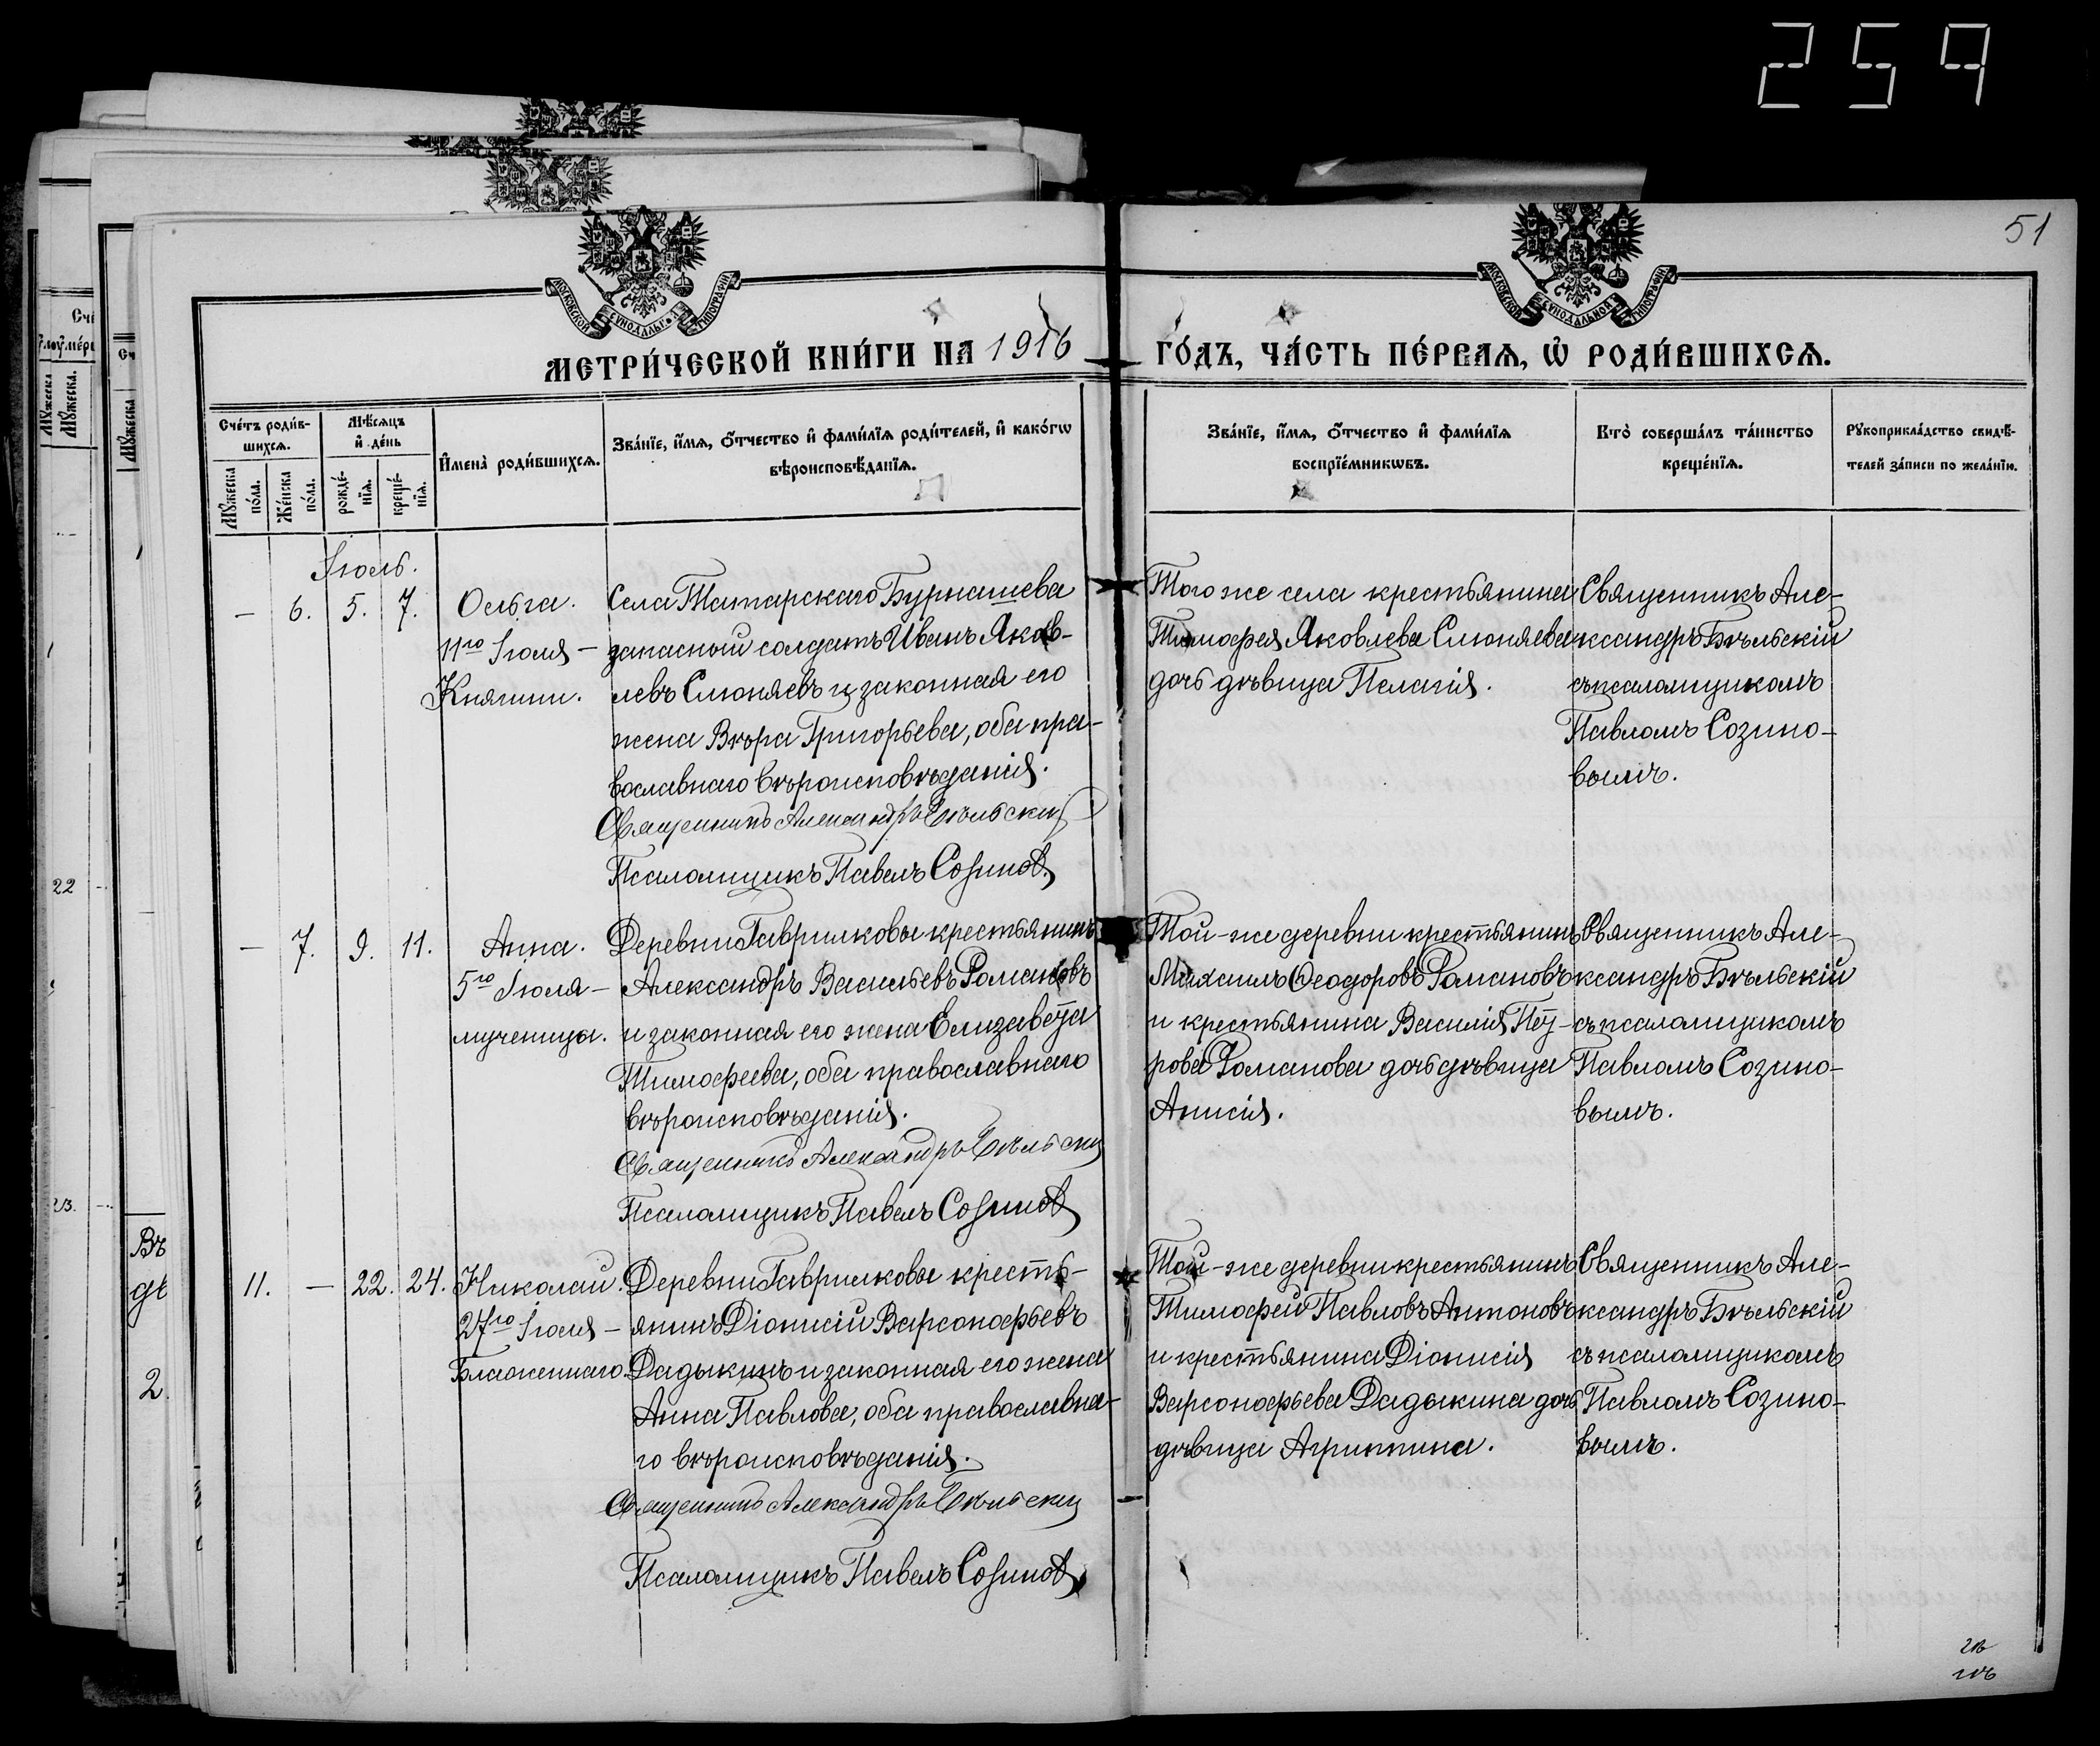 259
51
МОСКОВСКОЙ СѴНОДАЛЬНОЙ ТИПОГРАФІИ
МОСКОВСКОЙ СѴНОДАЛЬНОЙ ТИПОГРАФІИ
МЕТРИ́ЧЕСКОЙ КНИ́ГИ НА 1916
ГО́ДЪ, ЧА́СТЬ ПЕ́РВАѦ, Ѡ҆ РОДИ́ВШИХСѦ.
Сче́тъ роди́в-
шихсѧ.
Мѣ́сѧцъ
и҆ де́нь
Мꙋ́жеска
по́ла.
Же́нска
по́ла.
рожде́-
нїѧ.
креще́-
нїѧ.
И҆мена̀ роди́вшихсѧ.
Зва́нїе, и҆́мѧ, ѻ҆́тчество и҆ фами́лїѧ роди́телей, и҆ како́гѡ
вѣроисповѣ́данїѧ.
Зва́нїе, и҆́мѧ, ѻ҆́тчество и҆ фами́лїѧ
воспрїе́мникѡвъ.
Кто̀ соверша́лъ та́инство
креще́нїѧ.
Рꙋкоприкла́дство свидѣ́-
телей за́писи по жела́нїю.
Іюль.
— 6. 5. 7. Ольга.
11го Іюля —
Княгини.
Села Татарскаго Бурнашева
запасной солдатъ Иванъ Яков-
левъ Слюняевъ и законная его
жена Вѣра Григорьева, оба пра-
вославнаго вѣроисповѣданія.
Священникъ Александръ Бѣльскій
Псаломщикъ Павелъ Созинов
Того же села крестьянина
Тимофея Яковлева Слюняева
дочь дѣвица Пелагія.
Священникъ Але-
ксандръ Бѣльскій
съ псаломщикомъ
Павломъ Созино-
вымъ.
— 7. 9. 11. Анна.
5го Іюля —
мученицы.
Деревни Гаврилковы крестьянинъ
Александръ Васильевъ Романовъ
и законная его жена Елизавета
Тимофеева, оба православнаго
вѣроисповѣданія.
Священникъ Александръ Бѣльскій
Псаломщикъ Павелъ Созинов
Той-же деревни крестьянинъ
Михаилъ Ѳеодоровъ Романовъ
и крестьянина Василія Пет-
рова Романова дочь дѣвица
Анисія.
Священникъ Але-
ксандръ Бѣльскій
съ псаломщикомъ
Павломъ Созино-
вымъ.
11. — 22. 24. Николай.
27го Іюля —
Блаженнаго.
Деревни Гаврилковы кресть-
янинъ Діонисій Варсонофьевъ
Дадыкинъ и законная его жена
Анна Павлова, оба православна-
го вѣроисповѣданія.
Священникъ Александръ Бѣльскій
Псаломщикъ Павелъ Созинов
Той-же деревни крестьянинъ
Тимофей Павловъ Антоновъ
и крестьянина Діонисія
Варсонофьева Дадыкина дочь
дѣвица Агриппина.
Священникъ Але-
ксандръ Бѣльскій
съ псаломщикомъ
Павломъ Созино-
вымъ.
22
23.
Въ
2